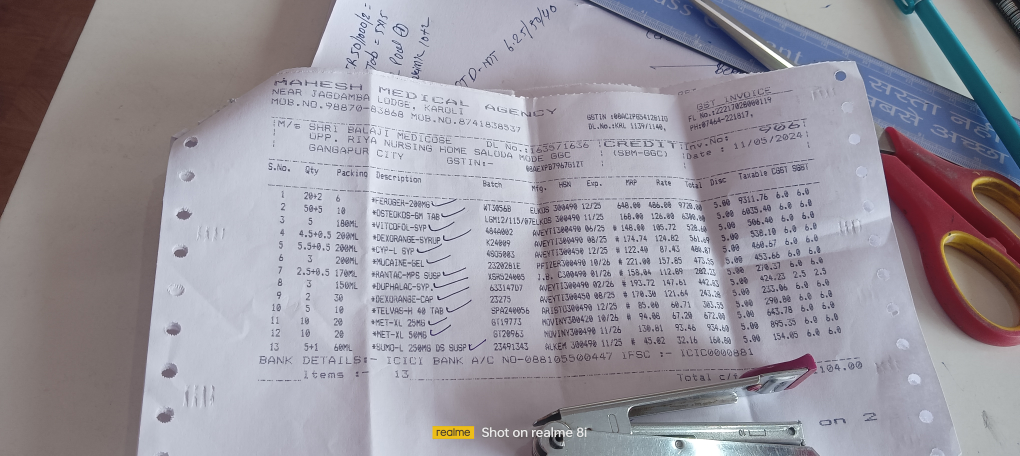 TR50/1000/2=
Tab = 5X15
6.25/50/40
MAHESH MEDICAL AGENCY
NEAR JAGDAMBA LODGE, KAROLI
MOB.NO.98870-83868 MOB.NO.8741838537
GSTIN :08ACIPG5412B1ZG
DL.No.:KRL 1139/1140,
GST INVOICE
FL No.:22217026000119
PH:07464-221817,
M/s SHRI BALAJI MEDICOSE
OPP. RIYA NURSING HOME SALODA MODE GGC
GANGAPUR CITY GSTIN:-
DL No.:1635/1636
08AEXPB7967G1ZT
CREDIT
(SBM-GGC)
Inv.No: 906
Date : 11/05/2024
S.No. Qty Packing Description Batch Mfg. HSN Exp. MRP Rate Total Disc Taxable CGST SGST
1 20+2 6 *FERUGER-200MG WT3056B ELKOS 300490 12/25 648.00 486.00 9720.00 5.00 9311.76 6.0 6.0
2 50+5 10 *OSTEOKOS-GM TAB LGM12/115/07ELKOS 300490 11/25 168.00 126.00 6300.00 5.00 6035.40 6.0 6.0
3 5 180ML *VITCOFOL-SYP 4BAA002 AVEYTI300490 06/25 # 148.00 105.72 528.60 5.00 506.40 6.0 6.0
4 4.5+0.5 200ML *DEXORANGE-SYRUP K24009 AVEYTI300490 08/25 # 174.74 124.82 561.69 5.00 538.10 6.0 6.0
5 5.5+0.5 200ML *CYP-L SYP 4SO5003 AVEYTI300450 12/25 # 122.40 87.43 480.87 5.00 460.67 6.0 6.0
6 3 200ML *MUCAINE-GEL 2320281E PFIZER300490 10/26 # 221.00 157.85 473.55 5.00 453.66 6.0 6.0
7 2.5+0.5 170ML *RANTAC-MPS SUSP XSRS24005 J.B. C300490 01/26 # 158.04 112.89 282.23 5.00 270.37 6.0 6.0
8 3 150ML *DUPHALAC-SYP. 633147D7 AVEYTI300490 02/26 # 193.72 147.61 442.83 5.00 424.23 2.5 2.5
9 2 30 *DEXORANGE-CAP 23275 AVEYTI300450 08/25 # 170.30 121.64 243.28 5.00 233.06 6.0 6.0
10 5 10 *TELVAS-H 40 TAB SPA240056 ARISTO300490 12/25 # 85.00 60.71 303.55 5.00 290.80 6.0 6.0
11 10 20 *MET-XL 25MG GT19773 MOVINY300420 10/26 # 94.08 67.20 672.00 5.00 643.78 6.0 6.0
12 10 20 *MET-XL 50MG GT20963 MOVINY300490 11/26 130.81 93.46 934.60 5.00 895.35 6.0 6.0
13 5+1 60ML *SUMO-L 250MG DS SUSP 23491343 ALKEM 300490 11/25 # 45.02 32.16 160.80 5.00 154.05 6.0 6.0
BANK DETAILS:- ICICI BANK A/C NO-088105500447 IFSC :- ICIC0000881
Items :- 13
Total c/f
104.00
on 2
सस्ता नहीं
सबसे अच्छा
realme Shot on realme 8i